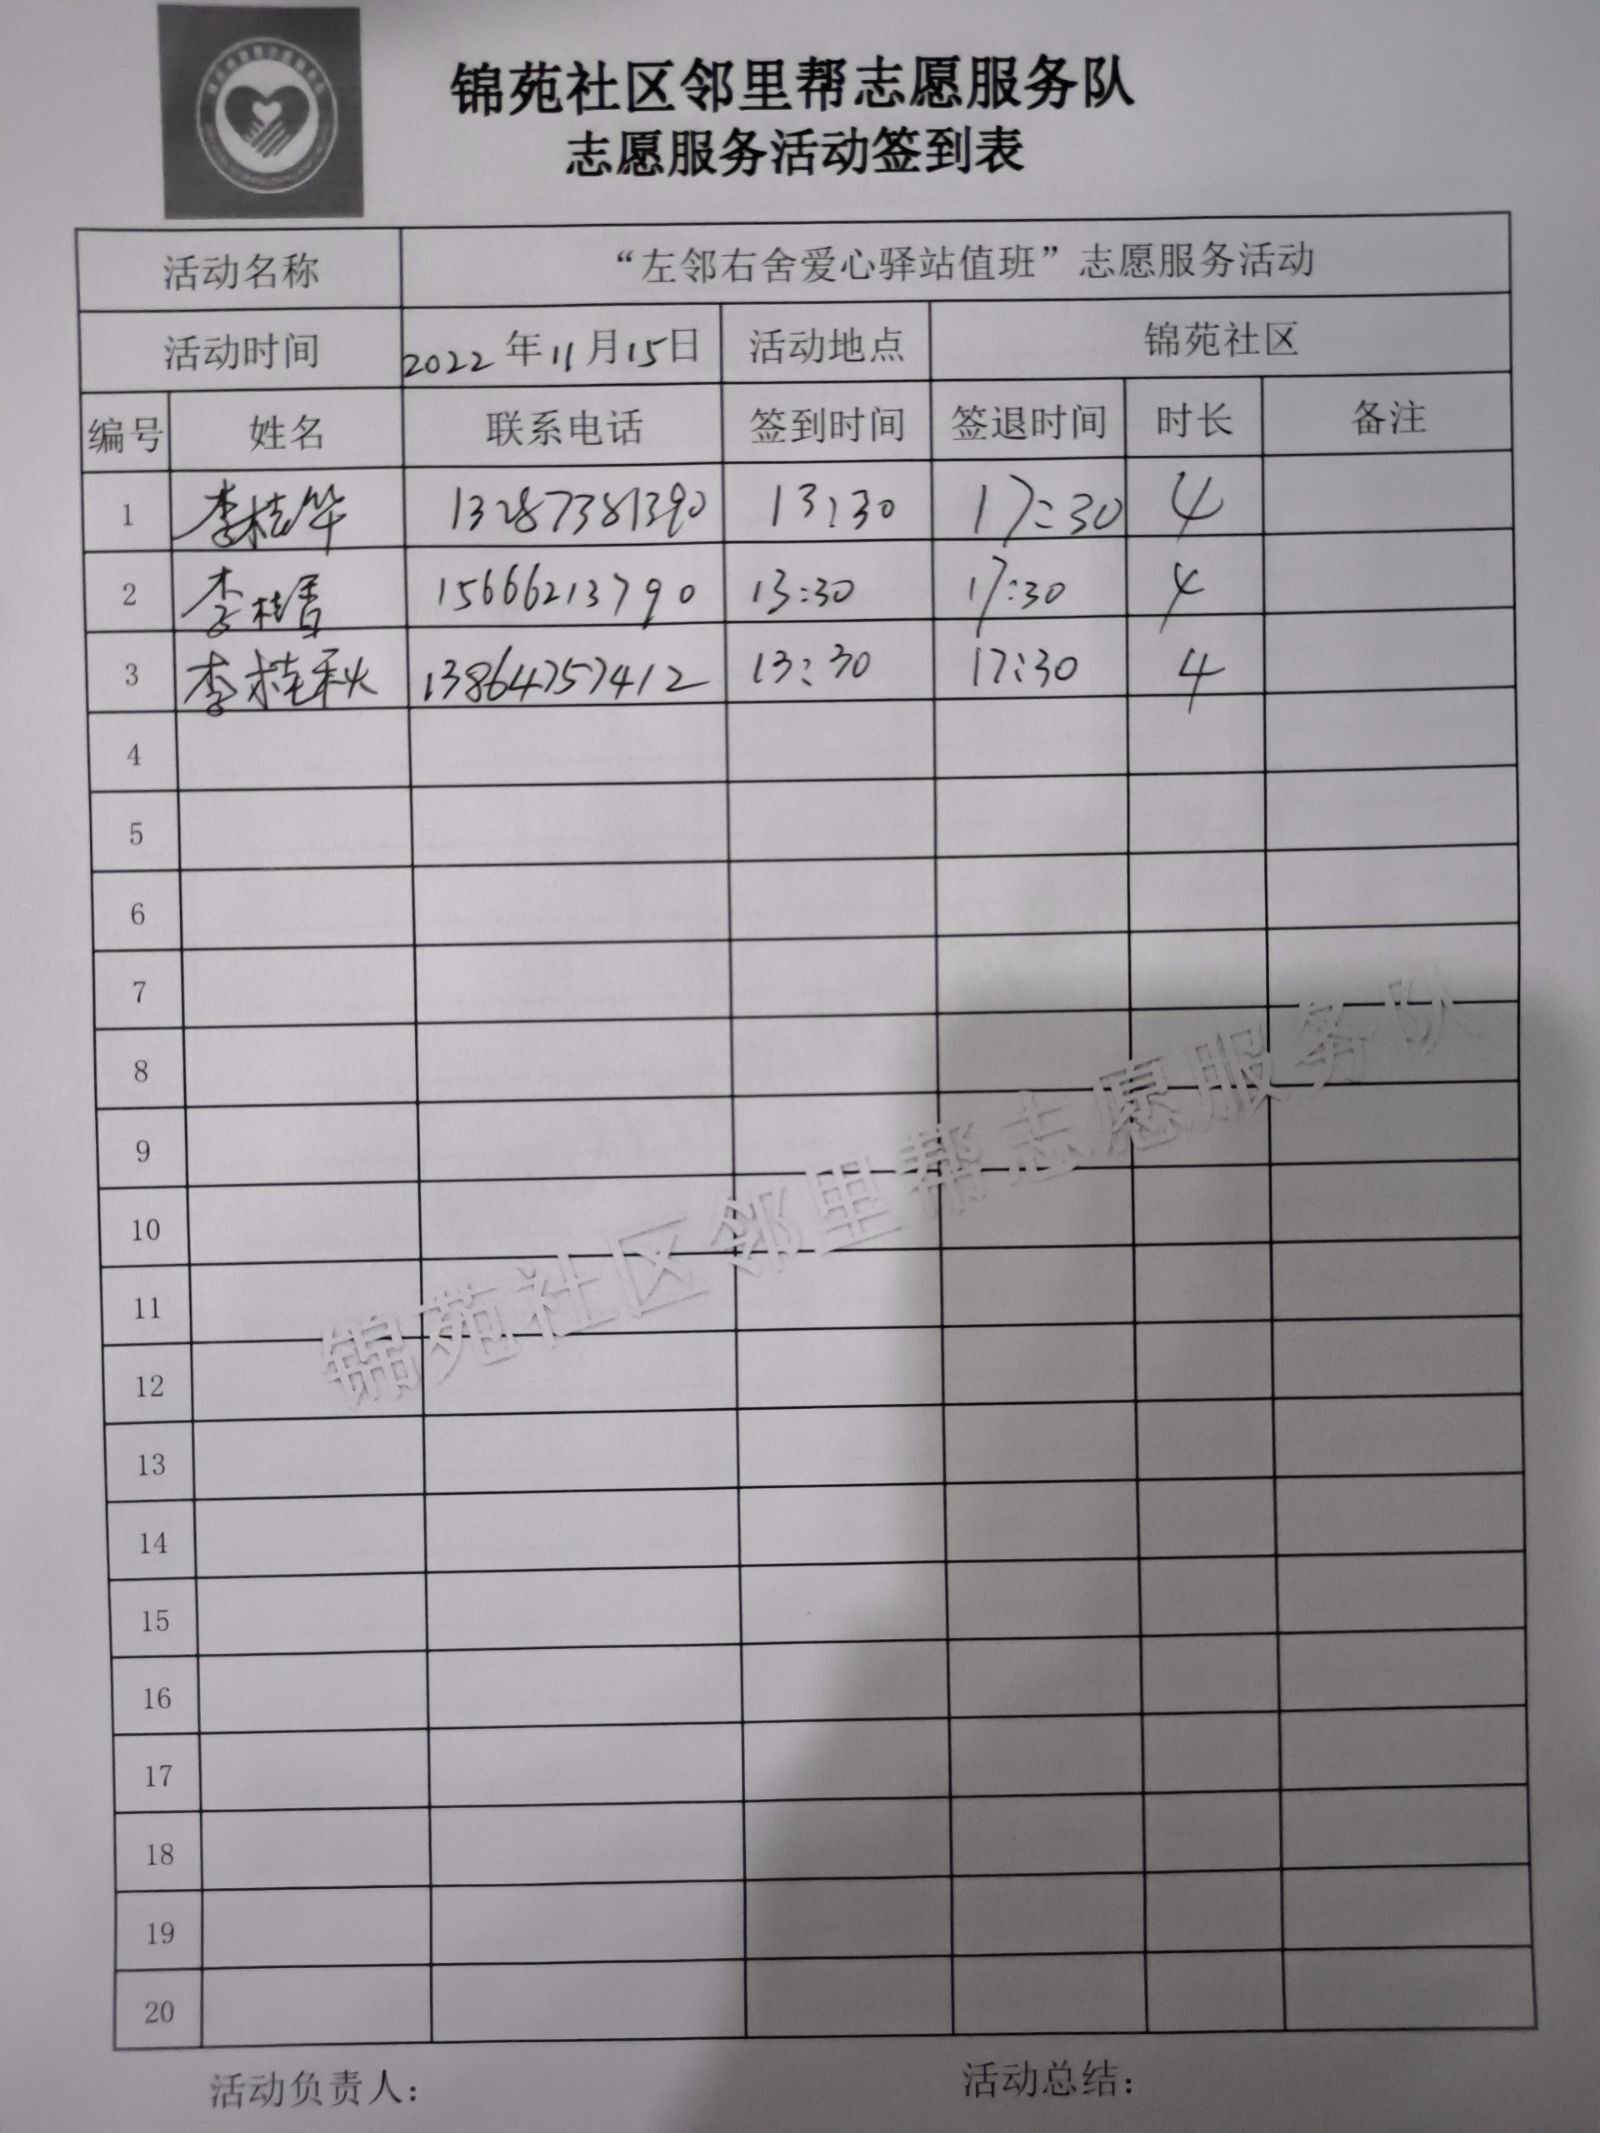 锦苑社区邻里帮志愿服务队
志愿服务活动签到表
活动名称 “左邻右舍爱心驿站值班”志愿服务活动
活动时间 2022年11月15日 活动地点 锦苑社区
编号 姓名 联系电话 签到时间 签退时间 时长 备注
1 李桂华 13287381390 13:30 17:30 4
2 李桂香 15666213790 13:30 17:30 4
3 李桂秋 13864757412 13:30 17:30 4
4
5
6
7
8
9
10
11
12
13
14
15
16
17
18
19
20
锦苑社区邻里帮志愿服务队
活动负责人: 活动总结: